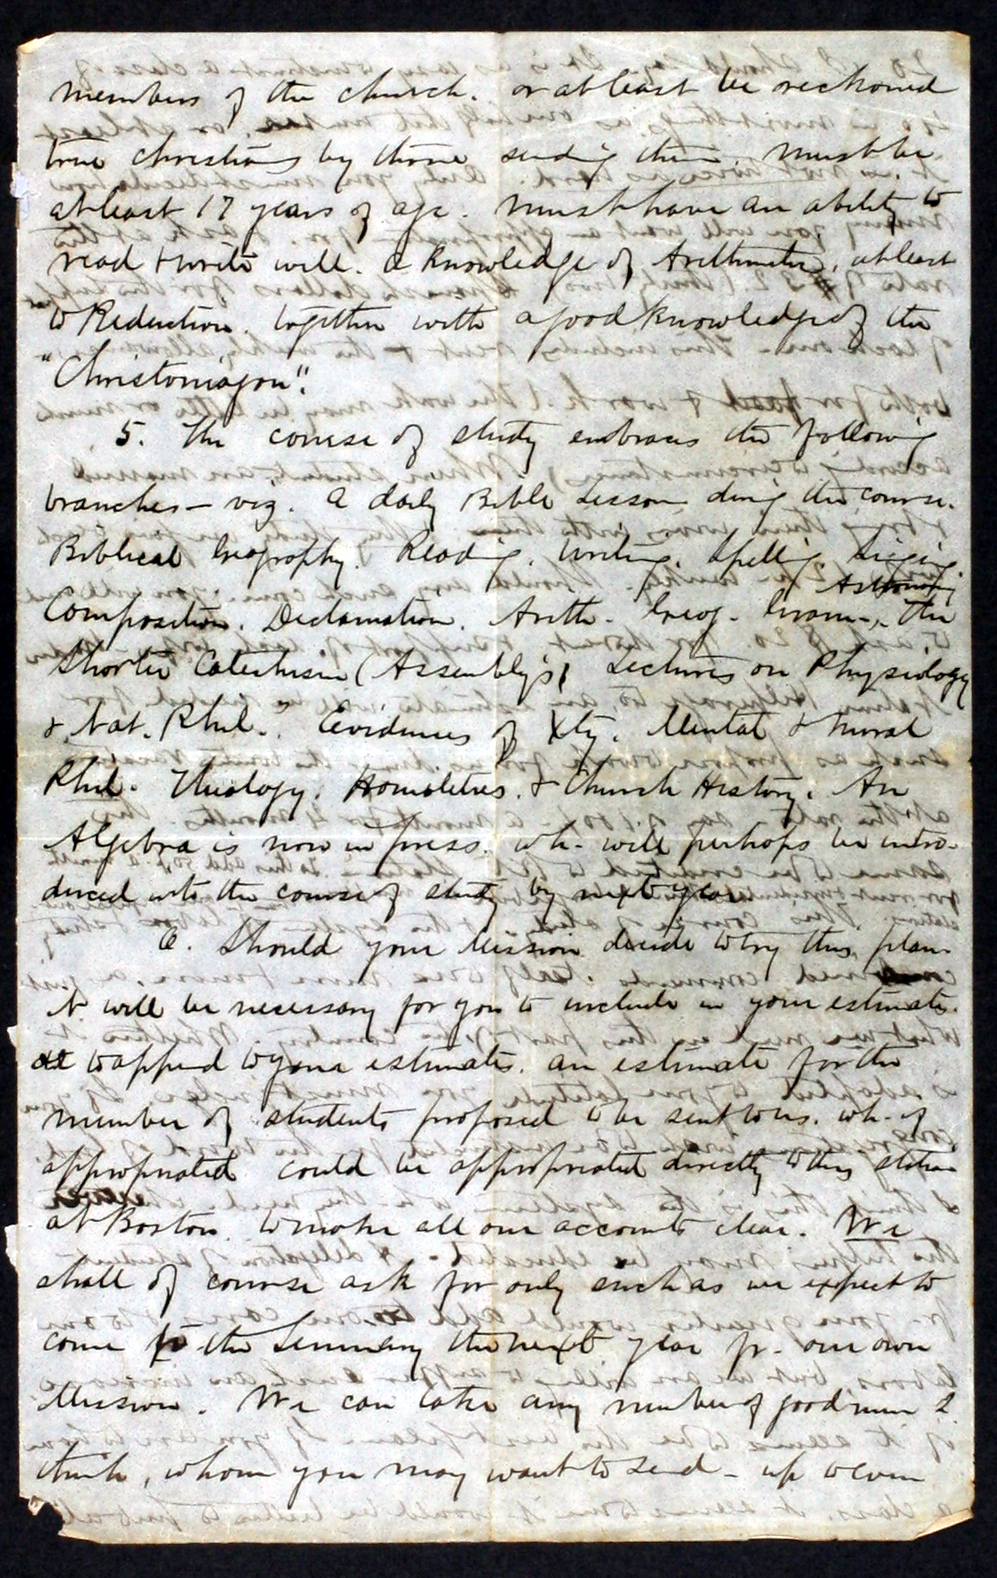 members of the church. or at least be reckoned
true christians by those sending them. Must be
at least 17 years of age. Must have an ability to
read & write well. a knowledge of Arithmetic, at least
to Reduction, together with a good knowledge of the
5. The course of study embraces the following
branches — viz. A daily Bible Lesson during the course.
Biblical Geography. Reading, Writing, Spelling, Singing
Astronomy
Composition. Declamation. Arith. Geog. Gram., The
Shorter Catechism (Assembly's) Lectures on Physiology
& Nat. Phil. Evidences of Xty. Mental & Moral
Phil. Theology. Homiletics. & Church History. An
Algebra is now in press. wh. will perhaps be intro-
duced into the course of study by next year
6. Should your Mission decide to try this plan
it will be necessary for you to include in your estimate
to append to your estimates. an estimate for the
number of students proposed to be sent to us. wh. if
appropriated could be appropriated directly to this station
at Boston. to make all our accounts clear. We
shall of course ask for only such as we expect to
come to the Seminary the next year fr. our own
Mission. We can take any number of good men I
think, whom you may want to send — up to even